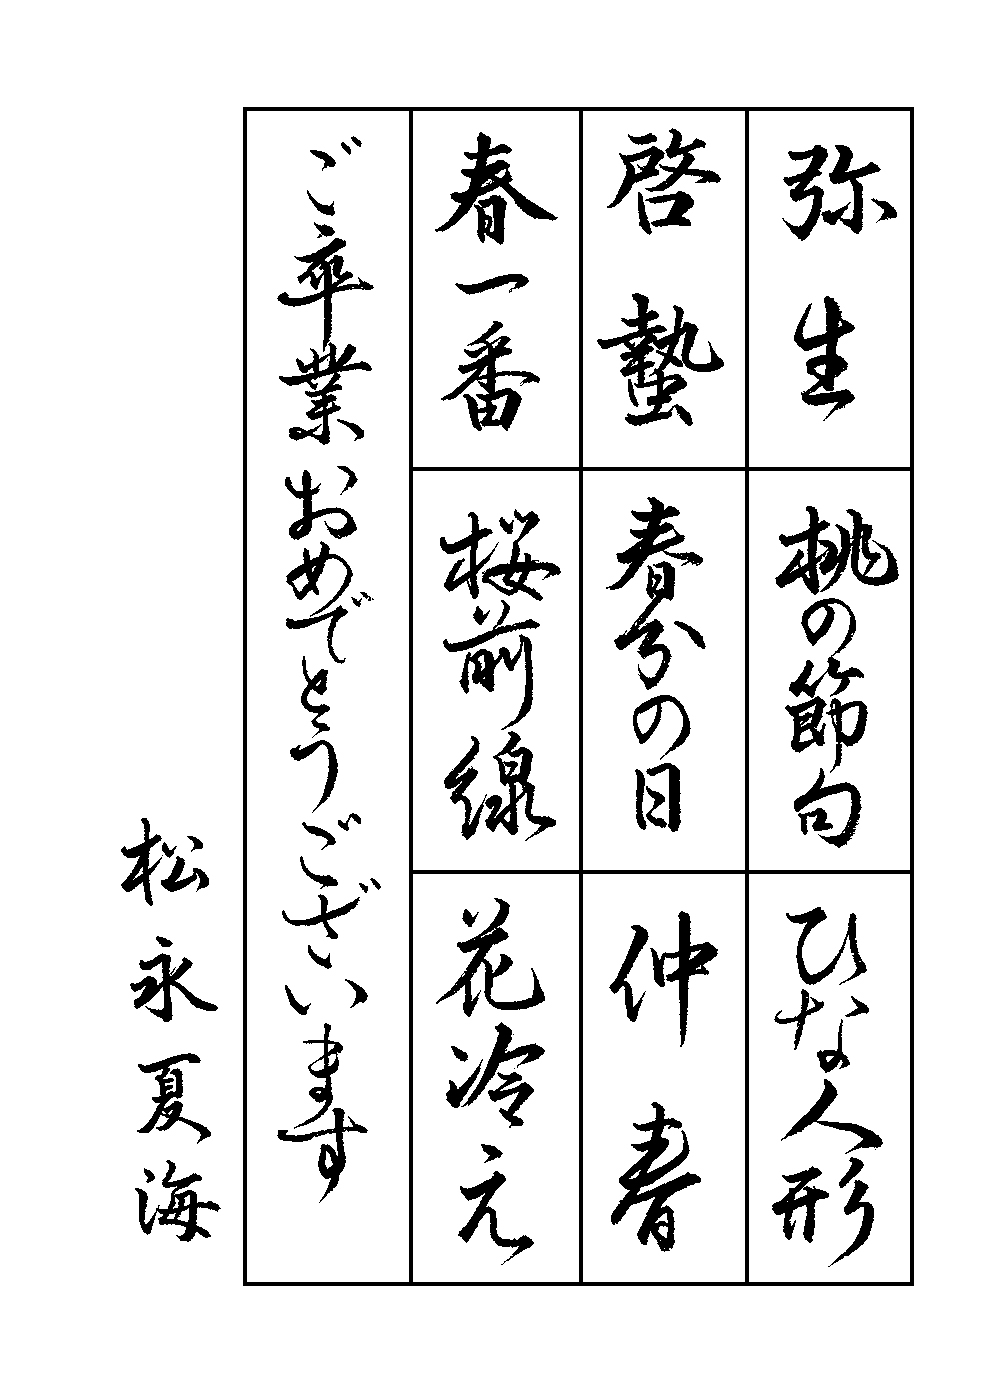 弥生
桃の節句
ひな人形
啓蟄
春分の日
仲春
春一番
桜前線
花冷え
ご卒業おめでとうございます
松永夏海